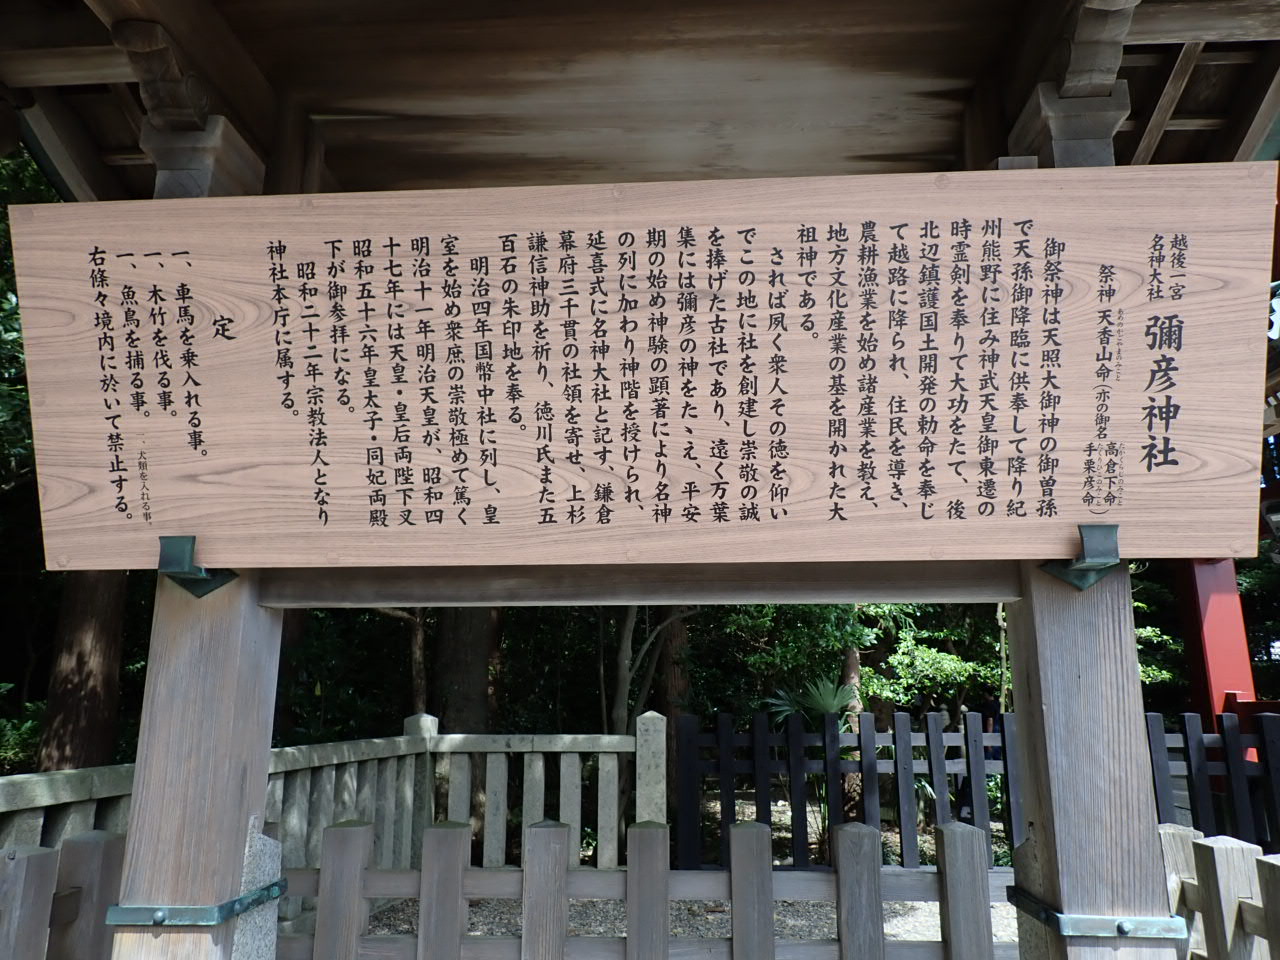 越後一宮
名神大社
彌彦神社
祭神 天香山命(亦の御名 高倉下命
手栗彦命)
御祭神は天照大御神の御曽孫
で天孫御降臨に供奉して降り紀
州熊野に住み神武天皇御東遷の
時霊剣を奉りて大功をたて、後
北辺鎮護国土開発の勅命を奉じ
て越路に降られ、住民を導き、
農耕漁業を始め諸産業を教え、
地方文化産業の基を開かれた大
祖神である。
されば夙く衆人その徳を仰い
でこの地に社を創建し崇敬の誠
を捧げた古社であり、遠く万葉
集には彌彦の神をたゝえ、平安
期の始め神験の顕著により名神
の列に加わり神階を授けられ、
延喜式に名神大社と記す、鎌倉
幕府三千貫の社領を寄せ、上杉
謙信神助を祈り、徳川氏また五
百石の朱印地を奉る。
明治四年国幣中社に列し、皇
室を始め衆庶の崇敬極めて篤く
明治十一年明治天皇が、昭和四
十七年には天皇・皇后両陛下又
昭和五十六年皇太子・同妃両殿
下が御参拝になる。
昭和二十二年宗教法人となり
神社本庁に属する。
定
一、車馬を乗入れる事。
一、木竹を伐る事。
一、魚鳥を捕る事。
一、犬類を入れる事。
右條々境内に於いて禁止する。